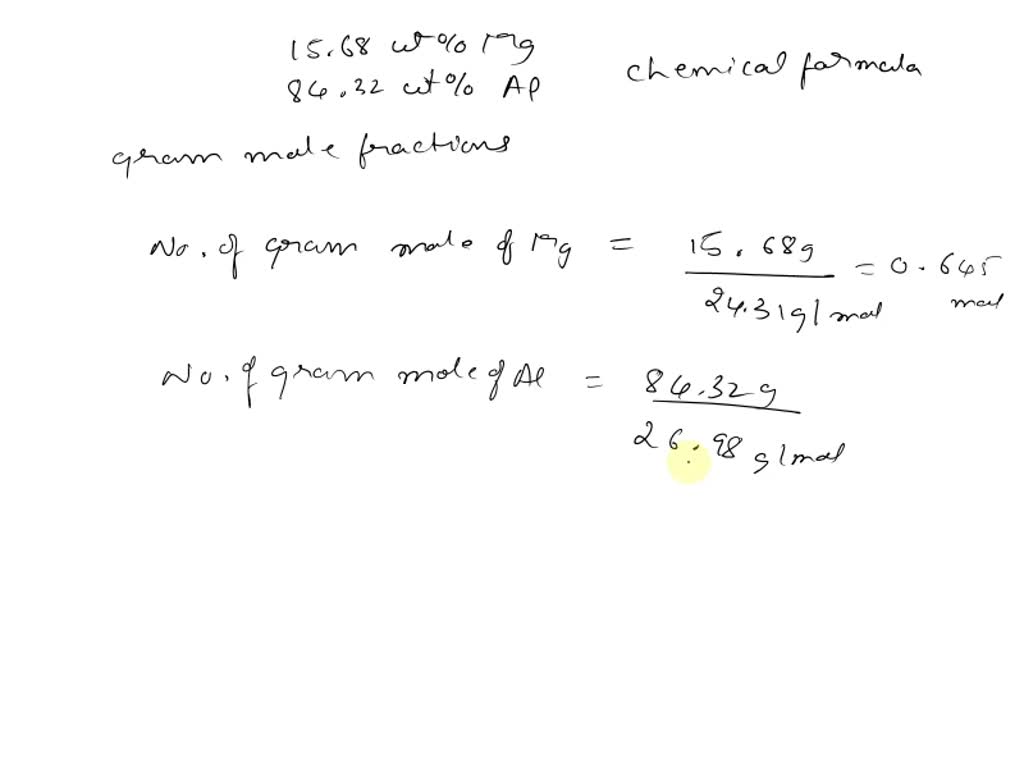 15.68 wt% Mg
84.32 wt% Al
chemical formula
gram mole fractions
No. of gram mole of Mg = 15.68g / 24.31 g/mol = 0.645 mol
No. of gram mole of Al = 84.32g / 26.98 g/mol